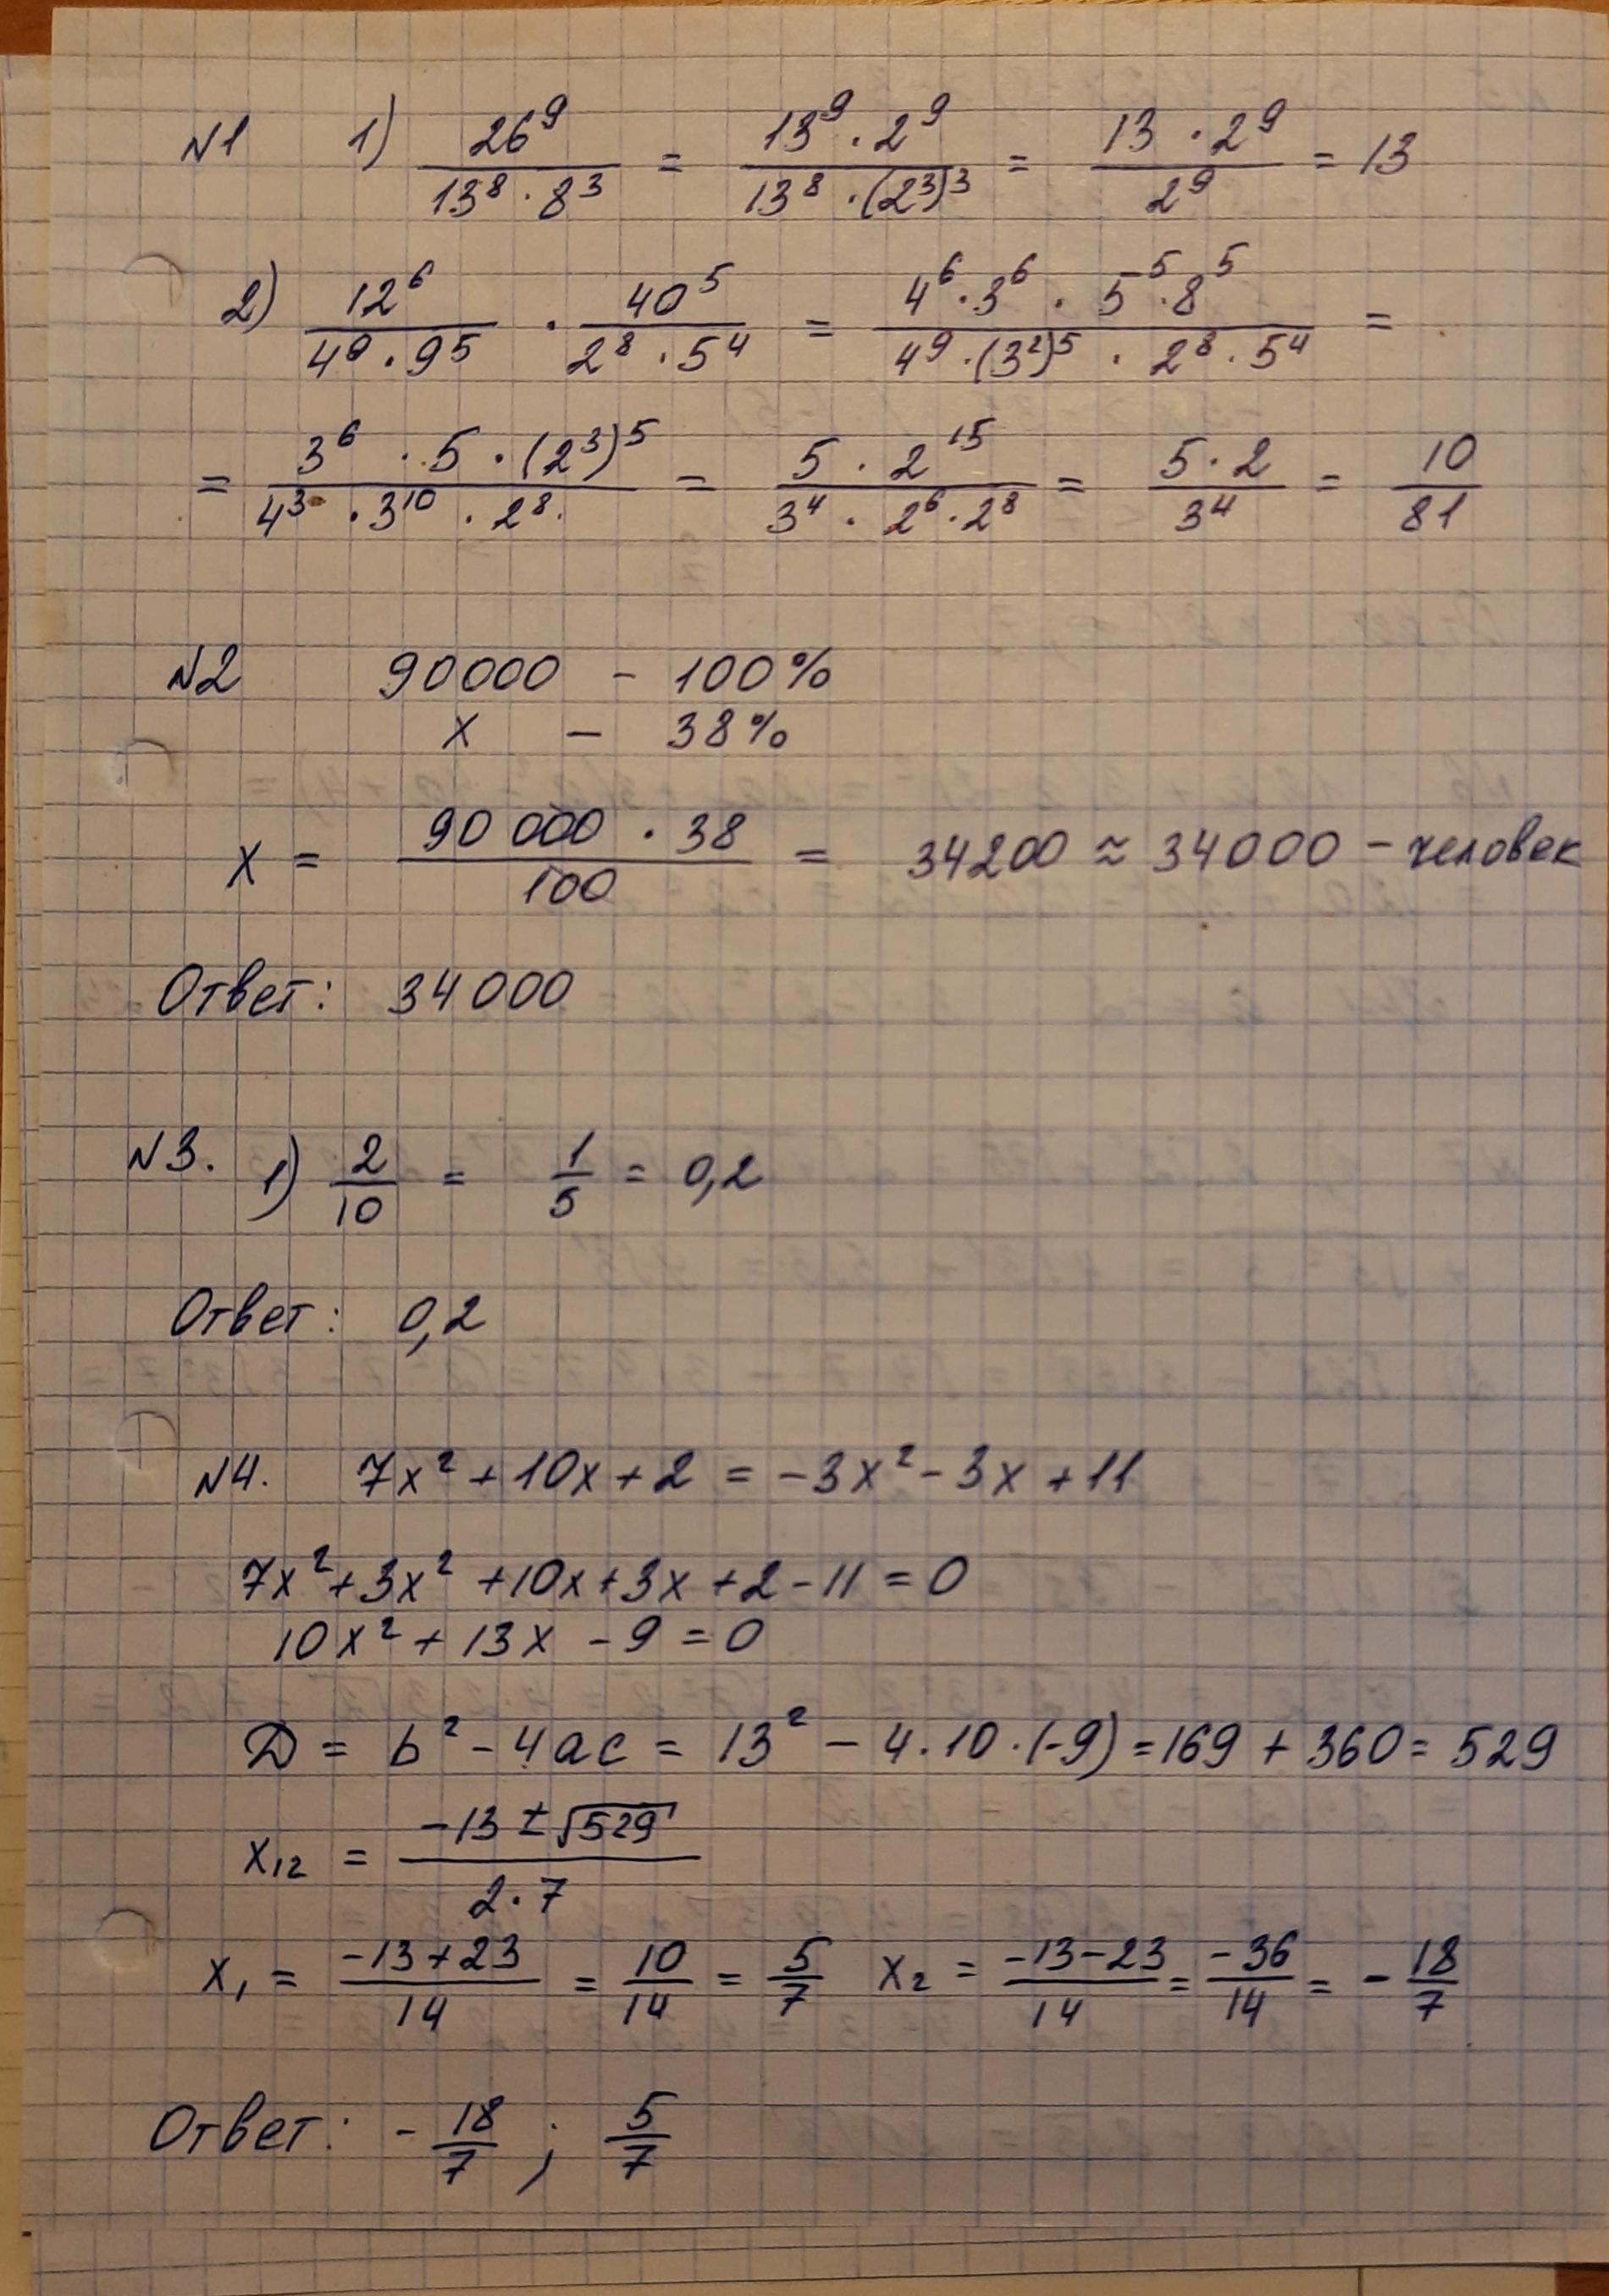 N1 1) 26⁹ / (13⁸ · 8³) = (13⁹ · 2⁹) / (13⁸ · (2³)³) = (13 · 2⁹) / 2⁹ = 13
2) 12⁶ / (4⁹ · 9⁵) · 40⁵ / (2⁸ · 5⁴) = (4⁶ · 3⁶ · 5⁵ · 8⁵) / (4⁹ · (3²)⁵ · 2⁸ · 5⁴) =
= (3⁶ · 5 · (2³)⁵) / (4³ · 3¹⁰ · 2⁸) = (5 · 2¹⁵) / (3⁴ · 2⁶ · 2⁸) = (5 · 2) / 3⁴ = 10 / 81
N2 90000 – 100%
x – 38%
x = (90 000 · 38) / 100 = 34200 ≈ 34000 – человек
Ответ: 34000
N3. 1) 2/10 = 1/5 = 0,2
Ответ: 0,2
N4. 7x² + 10x + 2 = -3x² - 3x + 11
7x² + 3x² + 10x + 3x + 2 - 11 = 0
10x² + 13x - 9 = 0
D = b² - 4ac = 13² - 4 · 10 · (-9) = 169 + 360 = 529
x₁₂ = (-13 ± √529) / (2 · 7)
x₁ = (-13 + 23) / 14 = 10/14 = 5/7 x₂ = (-13 - 23) / 14 = -36/14 = -18/7
Ответ: -18/7 ; 5/7